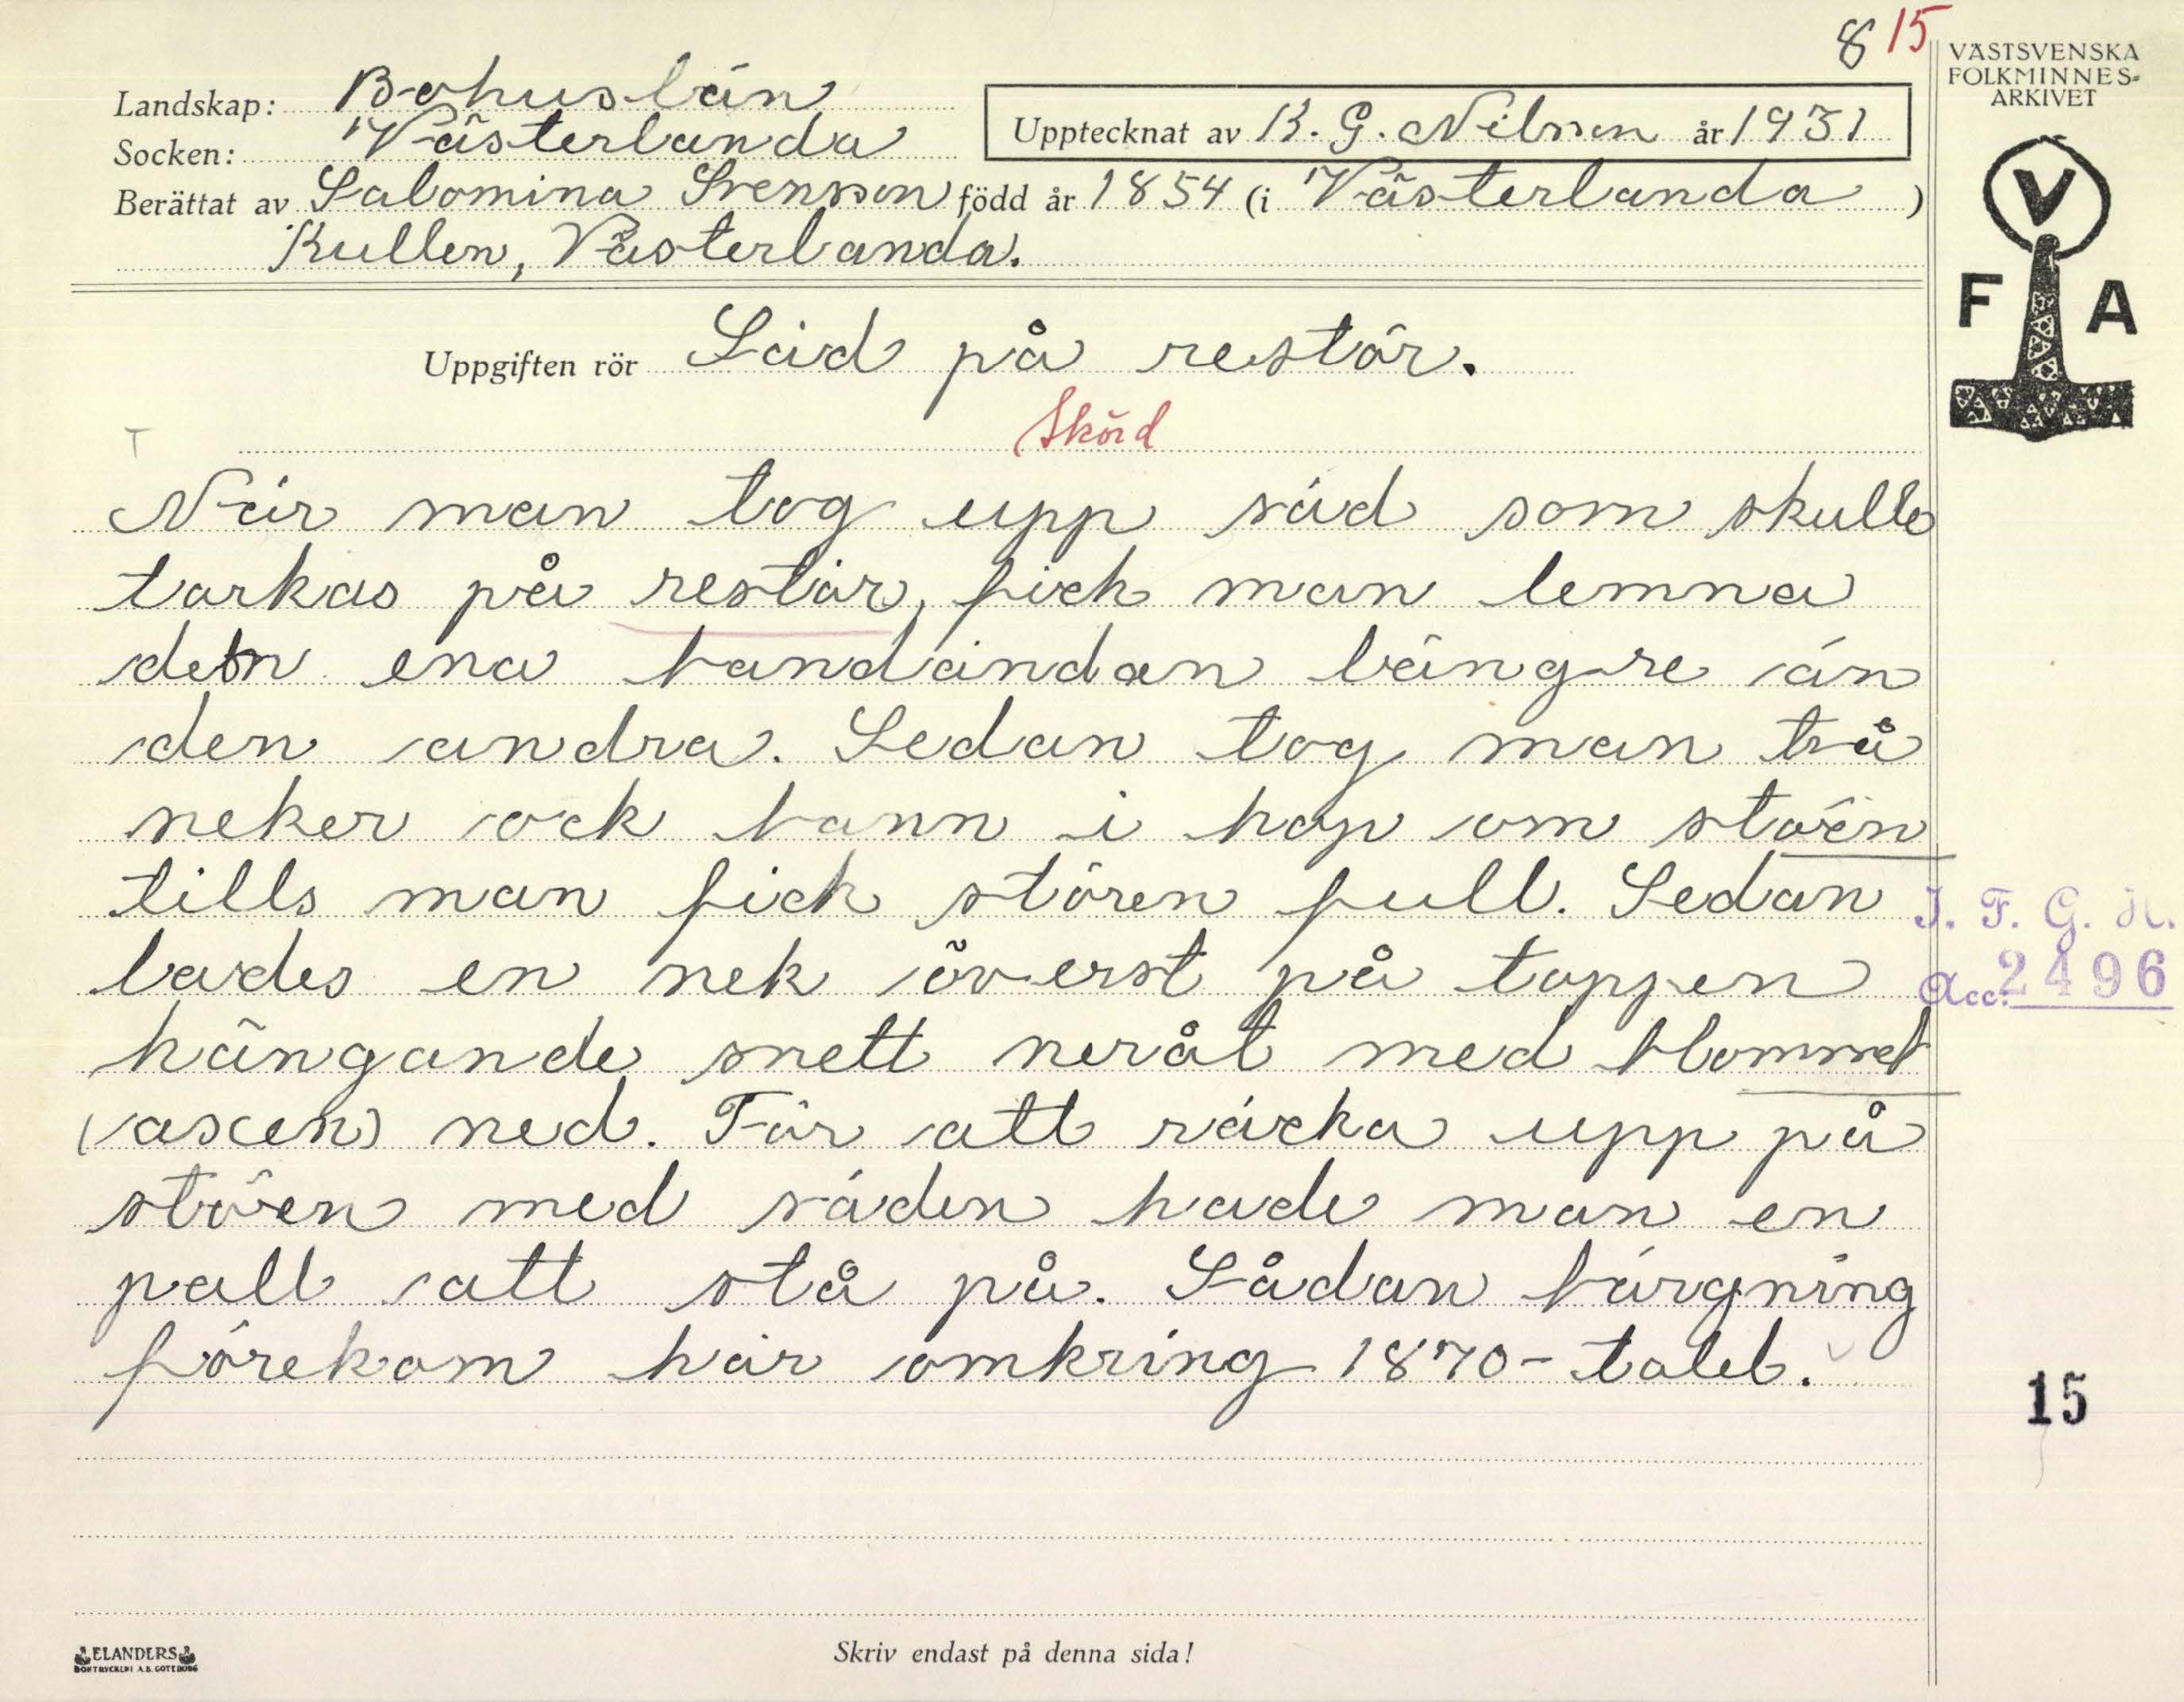 8 15
VÄSTSVENSKA
FOLKMINNES-
ARKIVET
Landskap: Bohuslän
Socken: Västerlanda
Upptecknat av K. G. Nilsson år 1931
Berättat av Salomina Svensson född år 1854 (i Västerlanda )
Kullen, Västerlanda.
V
F A
Uppgiften rör Säd på restör.
Skörd
T
När man tog upp säd som skulle
torkas på restör, fick man lemna
den ena bandändan längre än
den andra. Sedan tog man två
neker ock bann i hop om stöen
tills man fick stören full. Sedan
lades en nek överst på toppen
hängande snett neråt med blommet
(axen) ned. För att räcka upp på
stören med säden hade man en
pall att stå på. Sådan bärgning
förekom här omkring 1870-talet.
I. F. G. H.
Acc. 2496
15
ELANDERS
BOKTRYCKERI A.B. GÖTEBORG
Skriv endast på denna sida!